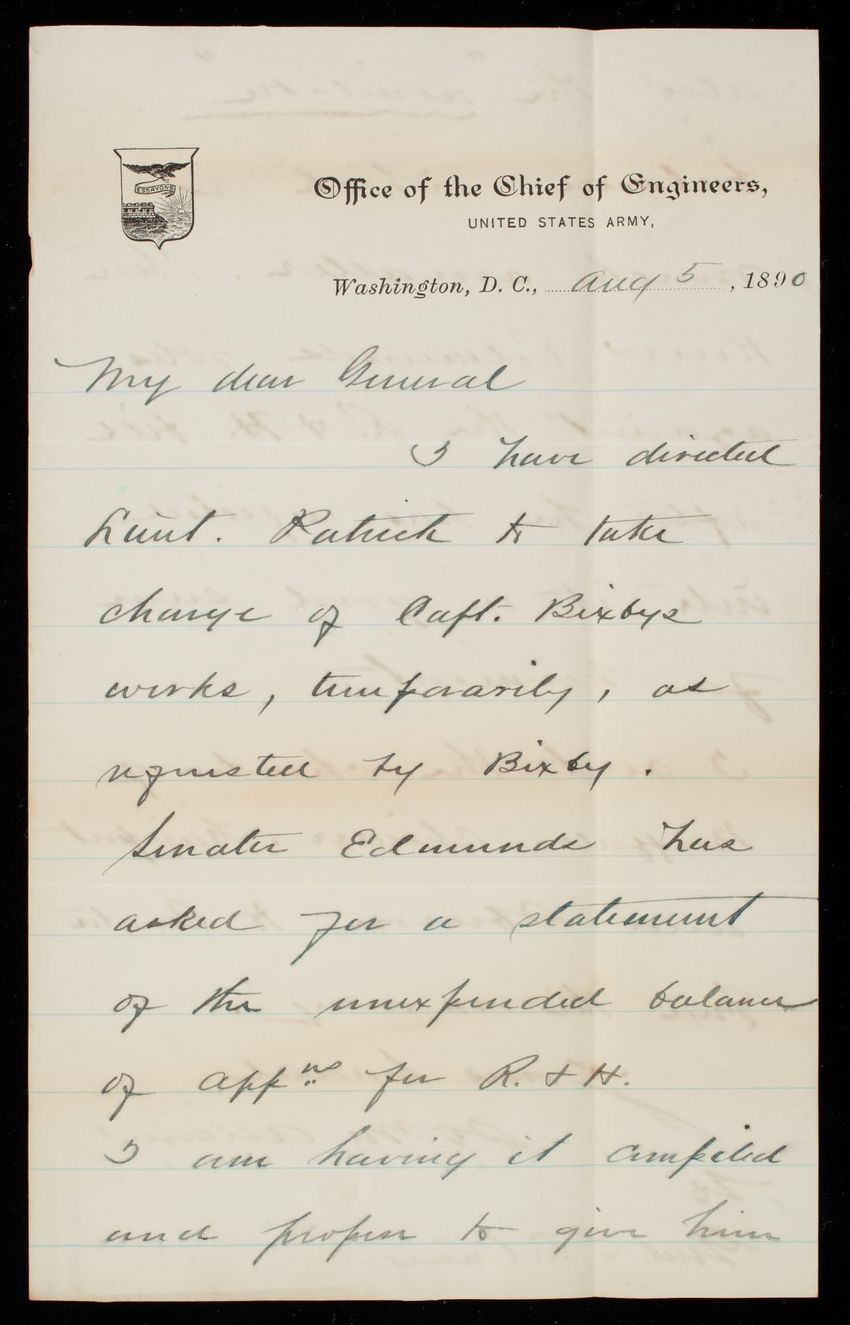 ESSAYONS
Office of the Chief of Engineers,
UNITED STATES ARMY,
Washington, D. C., Aug 5, 1890
My dear General
I have directed
Lieut. Patrick to take
charge of Capt. Bixbys
works, temporarily, as
requested by Bixby.
Senator Edmunds has
asked for a statement
of the unexpended balance
of appns for R. & H.
I am having it compiled
and propose to give him